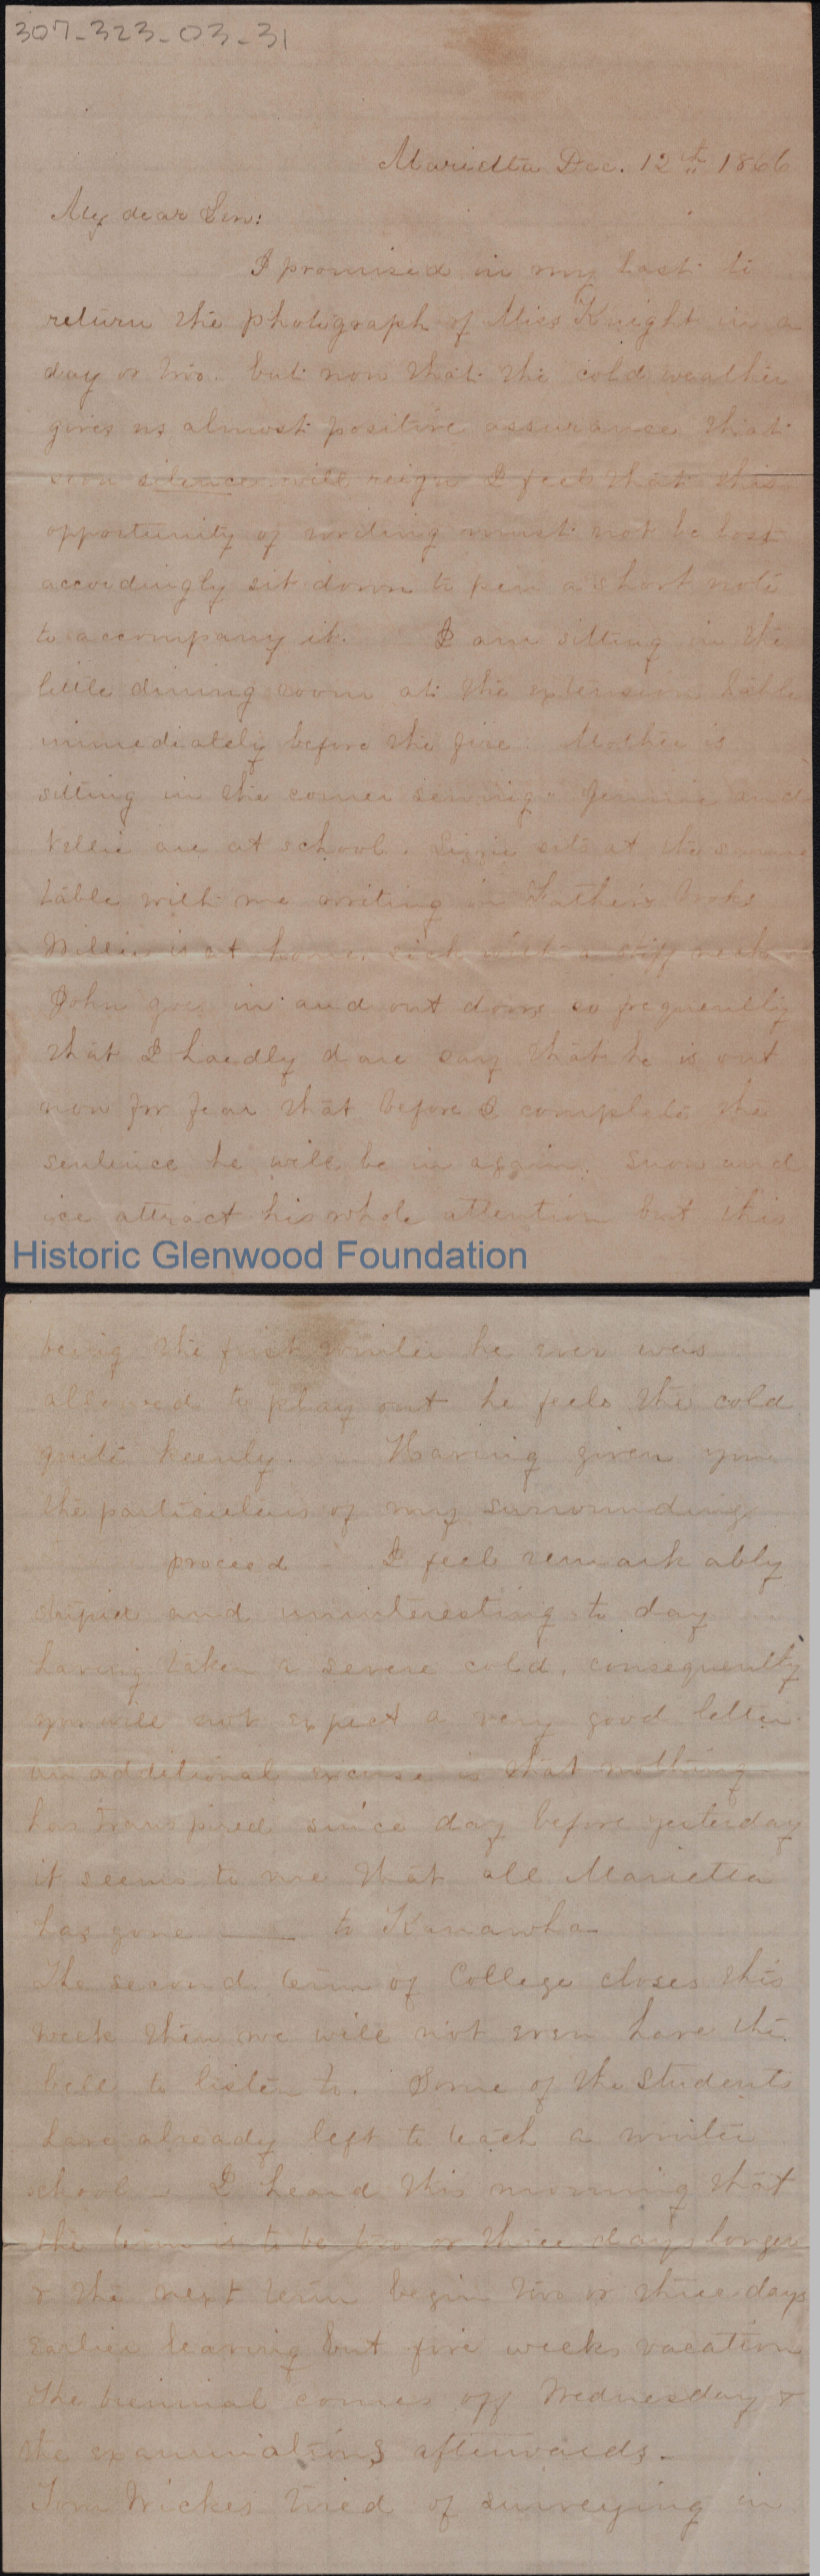 307-323-03-31
Marietta Dec. 12th 1866
My dear Sen:
I promised in my last to
return the photograph of Miss Knight in a
day or two. but now that the cold weather
gives us almost positive assurance that
soon silence will reign I feel that this
opportunity of writing must not be lost
accordingly sit down to pen a short note
to accompany it. I am sitting in the
little dining room at the extension table
immediately before the fire. Mother is
sitting in the corner sewing. Jennie and
Nellie are at school. Lizzie sits at the same
table with me writing in Father's books
Willie is at home, sick with a stiff neck.
John goes in and out doors so frequently
that I hardly dare say that he is out
now for fear that before I complete the
sentence he will be in again. Snow and
ice attract his whole attention but this
Historic Glenwood Foundation
being the first winter he ever was
allowed to play out he feels the cold
quite keenly. Having given you
the particulars of my surrounding
proceed - I feel remarkably
stupid and uninteresting to day
having taken a severe cold, consequently
you will not expect a very good letter
an additional excuse is that nothing
has transpired since day before yesterday
it seems to me that all Marietta
has gone —— to Kanawha
The second term of College closes this
week then we will not even have the
bell to listen to. Some of the students
have already left to teach a winter
school - I heard this morning that
the term is to be two or three days longer
& the next term begin two or three days
earlier leaving but five weeks vacation
The biennial comes off Wednesday &
the examinations afterwards -
Tom Wickes tired of surveying in